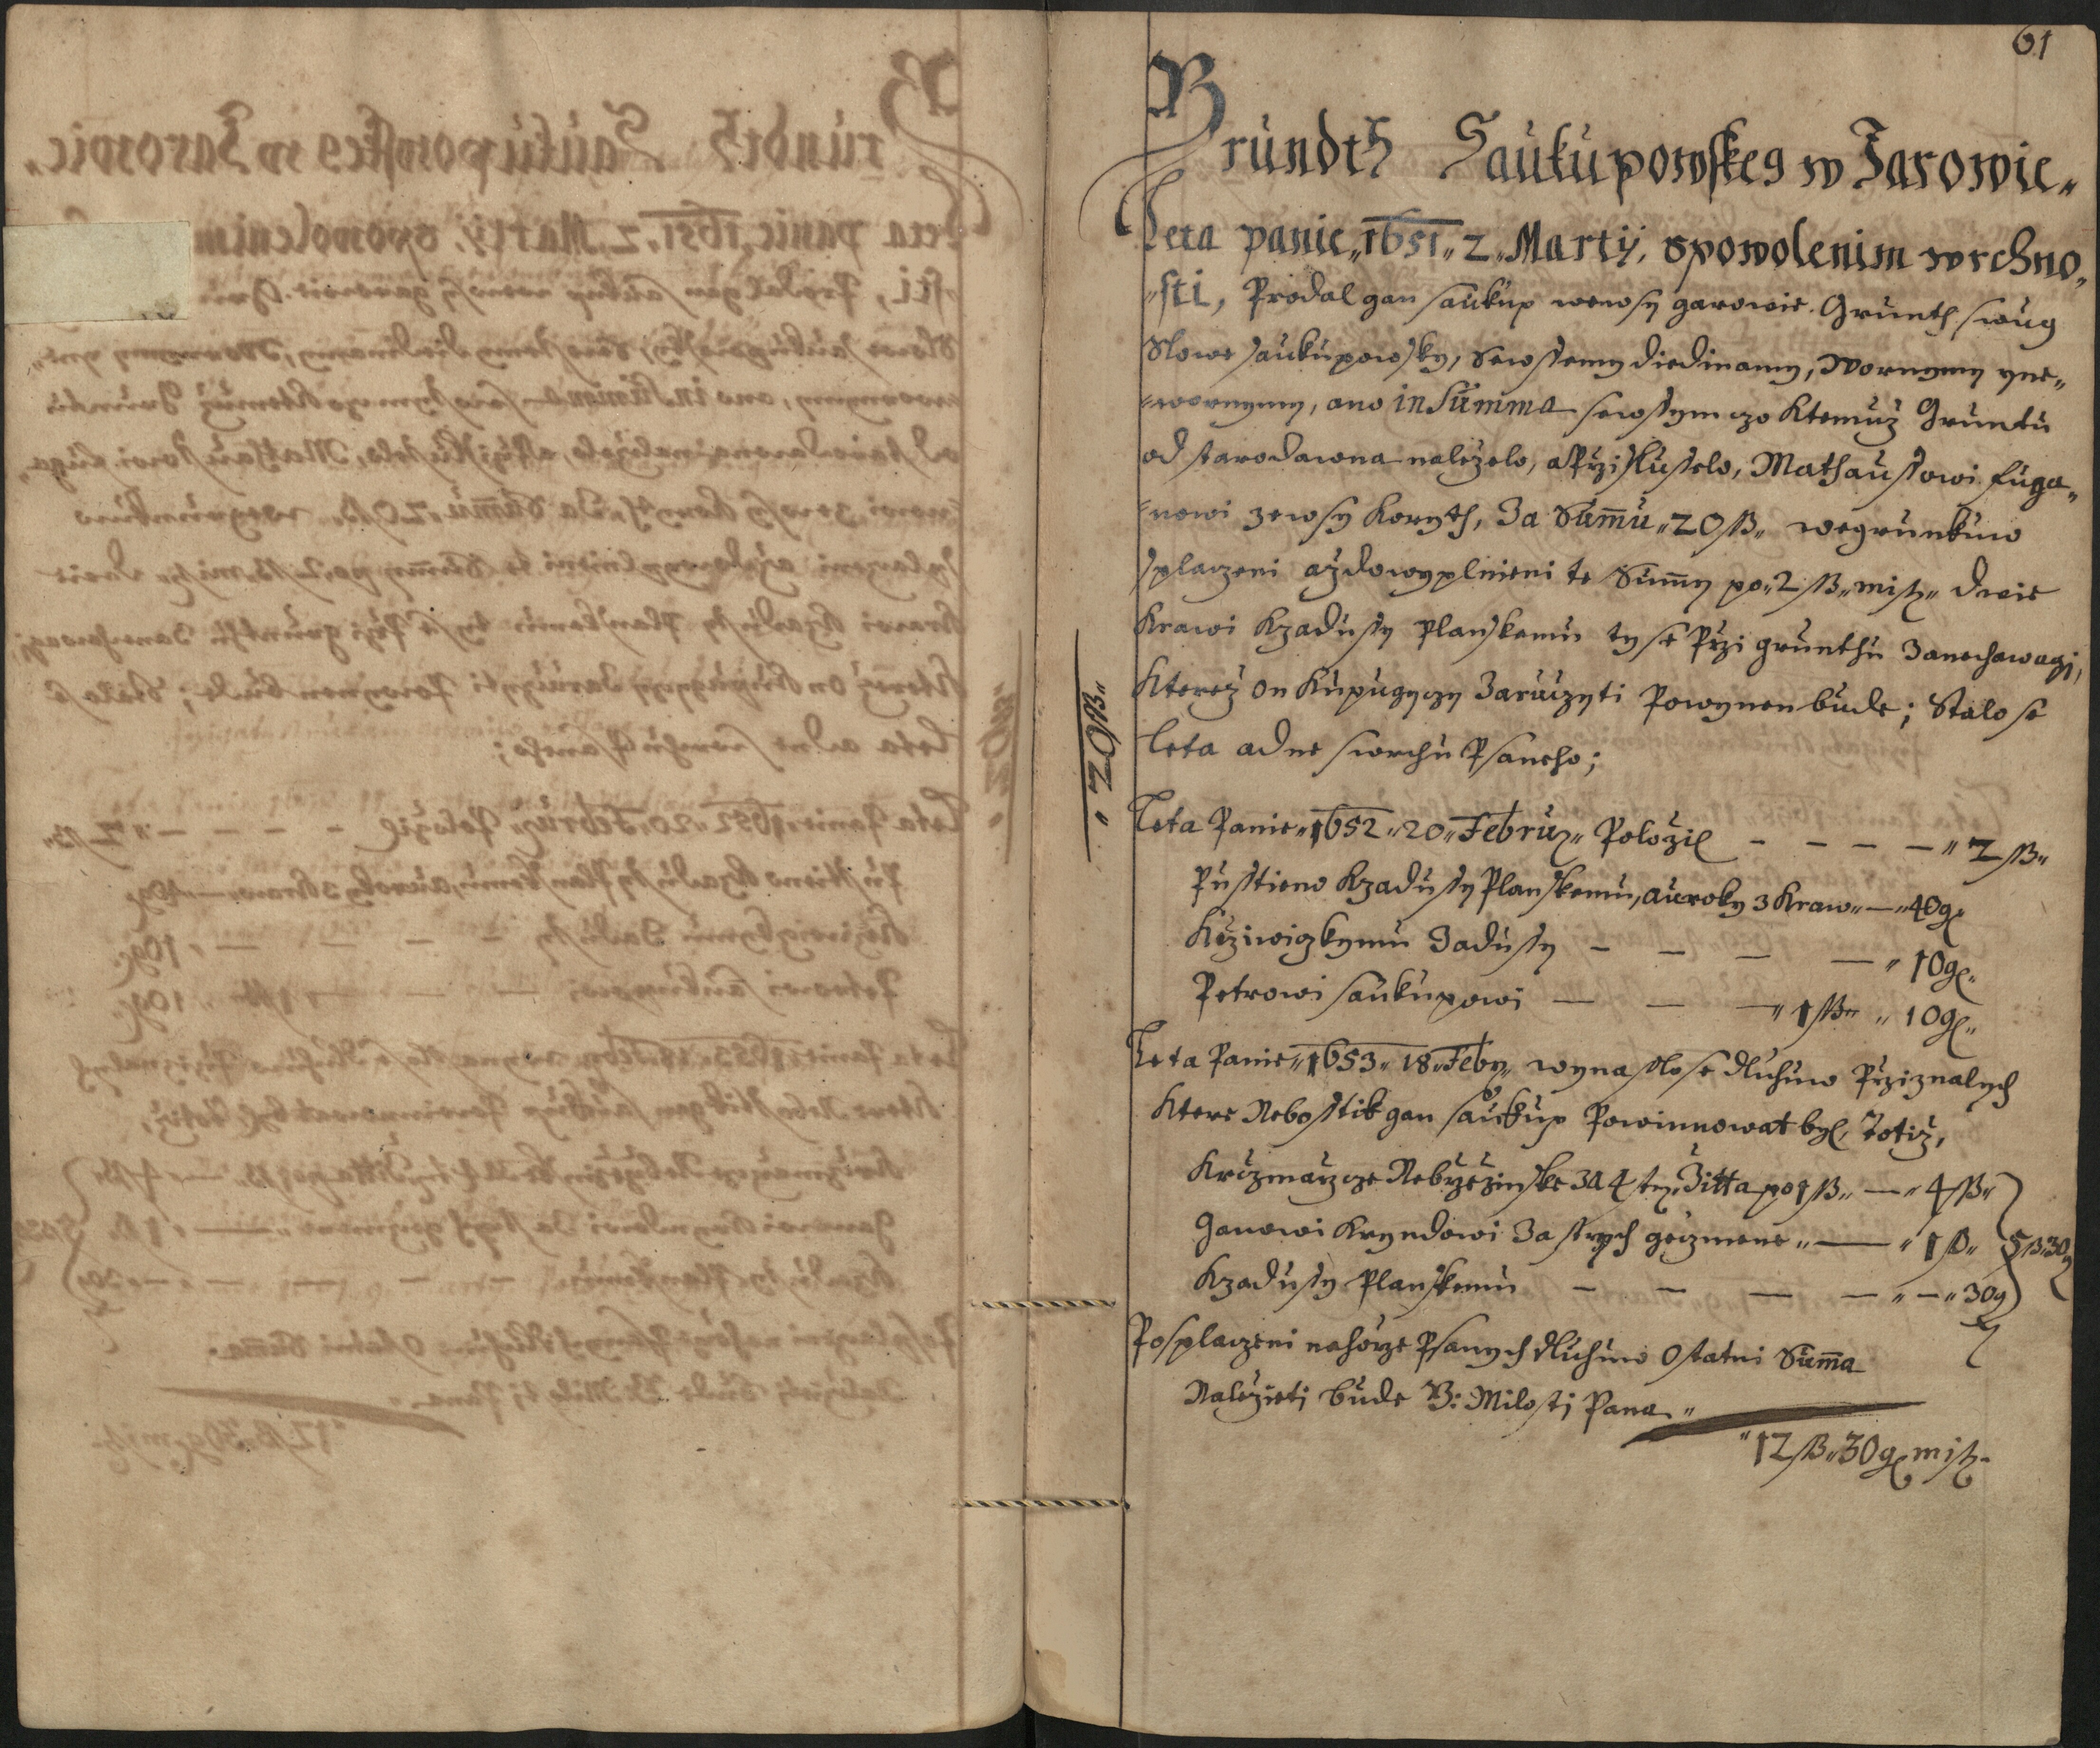 61
Grundth Saukupowskeg w Jarowic„
Leta panie„1651„2„Martij, spowolenim wrchno„
„sti, Prodal gan saukup wewsy garowie. Grunth swug
Slowe saukupowsky, Sewssemy diedinamy, Wornymy yne„
„wornymy, ano in Summa sewssym czo ktemuž Gruntu
od starodawna naleželo, aprzisluselo, Mathaussowi fuga„
„nowi zewsy koryth, Za Sum̄u „20 ß„ wegrunkuw
splaczeni aždowyplnieni te Sum̄y po„2 ß„ miß„ dwie
krawi kzadussy planskemu ty se Przi grunthu Zanechawagj,
kterež on kupugyczy Zaruczyti Powynen bude; Stalo se
leta adne swrchu Psaneho;
„20 ß„
Leta Panie„1652„20„Februz„ Položil – – – –„ 2 ß„
Pusstieno kzadussy Planskemu, auroky z kraw„ — „40 g
krziwiczkymu Zadussy – – – — „ 10 g„
Petrowi saukupowi — — —„ 1 ß„ „ 10 g„
Leta Panie„1653„18„Feby„ wynasslo se dluhuw Prziznalych
ktere Nebosstik gan saukup Powinnowat byl, Totiž,
krczmarzcze Nebrzezinske za 4 Žitta po 1 ß„ — „4 ß„
ganowi kryndowi Za strych geczmene „—— „ 1 ß„ 5 ß 30 g
kzadussy Planskemu – – — — „ – „ 30 g
Posplaczeni nahorze Psanych dluhuw Ostatni Sum̄a
Naležieti bude Milosti Pana„
„12 ß„30 g miß„